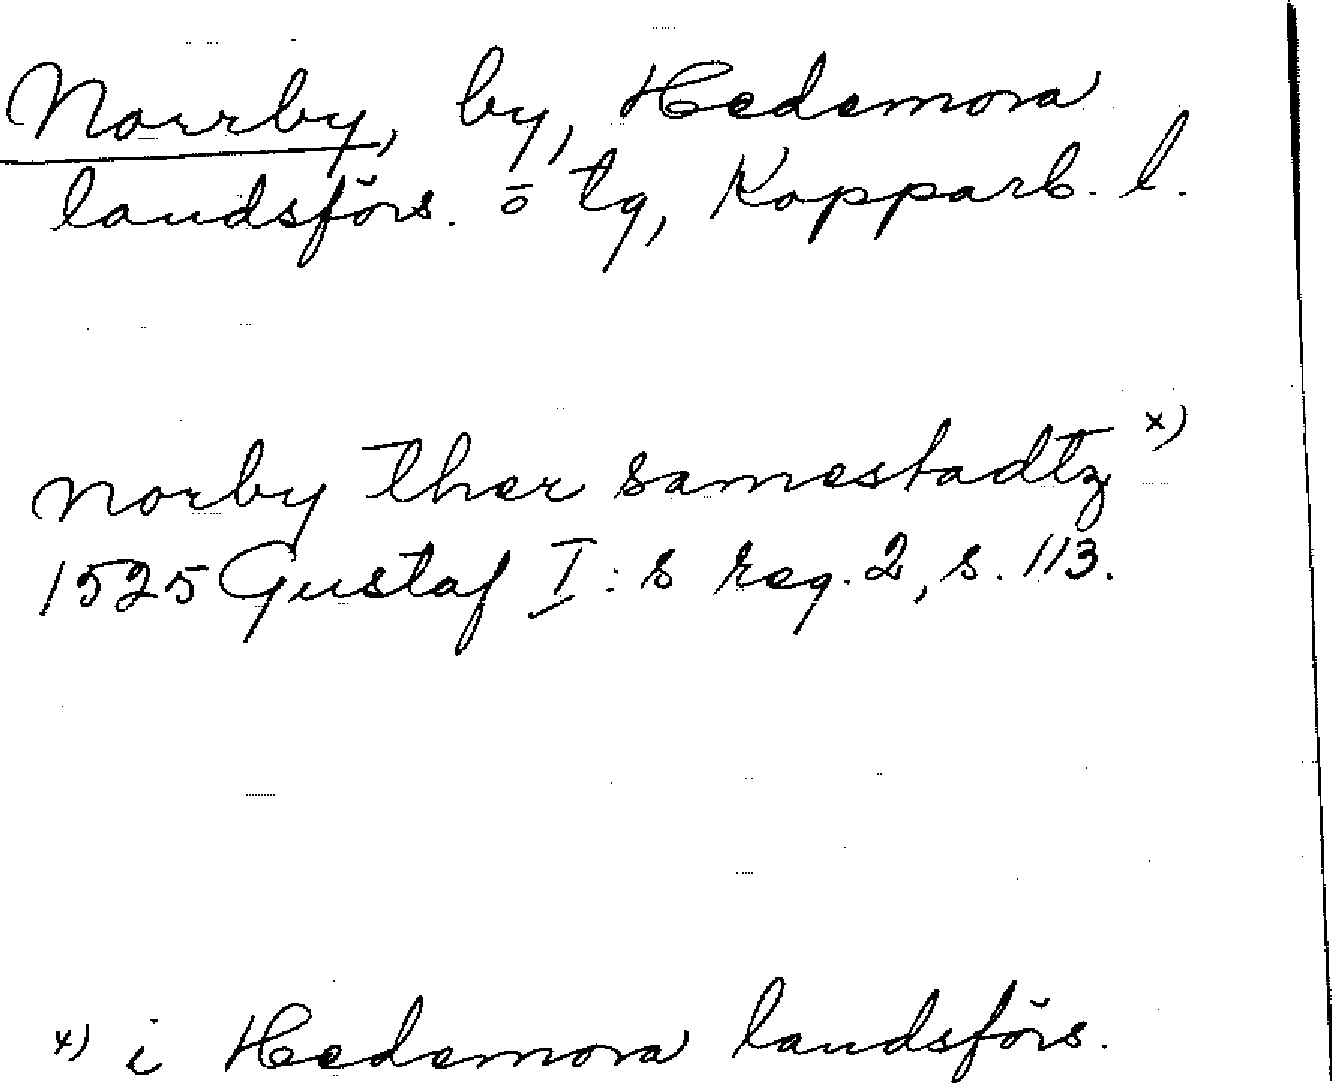 Norrby, by, Hedemora
landsförs. o tg, Kopparb. l.
norby ther samestadtz x)
1525 Gustaf I:s reg. 2, s. 113.
x) i Hedemora landsförs.